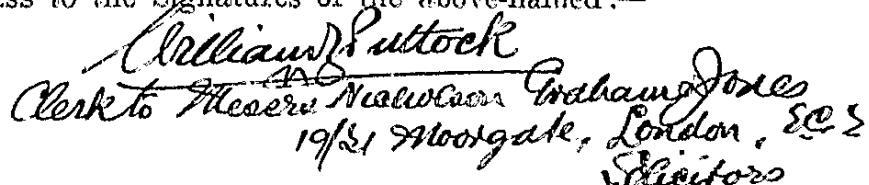 ess to the Signatures of the above-named:—
William Puttock
Clerk to Messrs Nicholson Graham & Jones
19/21 Moorgate, London, E.C.2
Solicitors